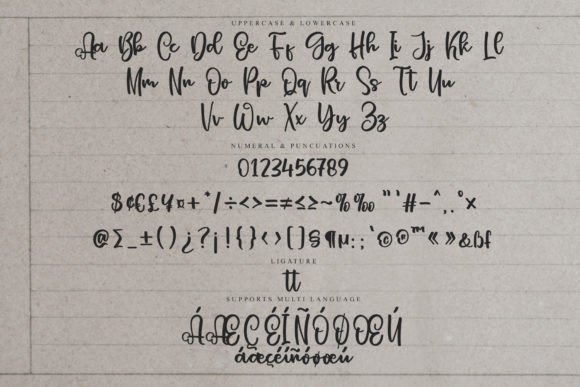 UPPERCASE & LOWERCASE
Aa Bb Cc Dd Ee Ff Gg Hh Ii Jj Kk Ll
Mm Nn Oo Pp Qq Rr Ss Tt Uu
Vv Ww Xx Yy Zz
NUMERAL & PUNCUATIONS
0123456789
$¢€£¥¤+*/÷<>=≠≤≥~%‰"'#-^,.°×
@∑_±()¿?¡!{}‹›[]§¶µ:;`©®™«»&ßf
LIGATURE
tt
SUPPORTS MULTI LANGUAGE
ÁÆÇÉÍÑÓØŒÚ
áæçéíñóøœú